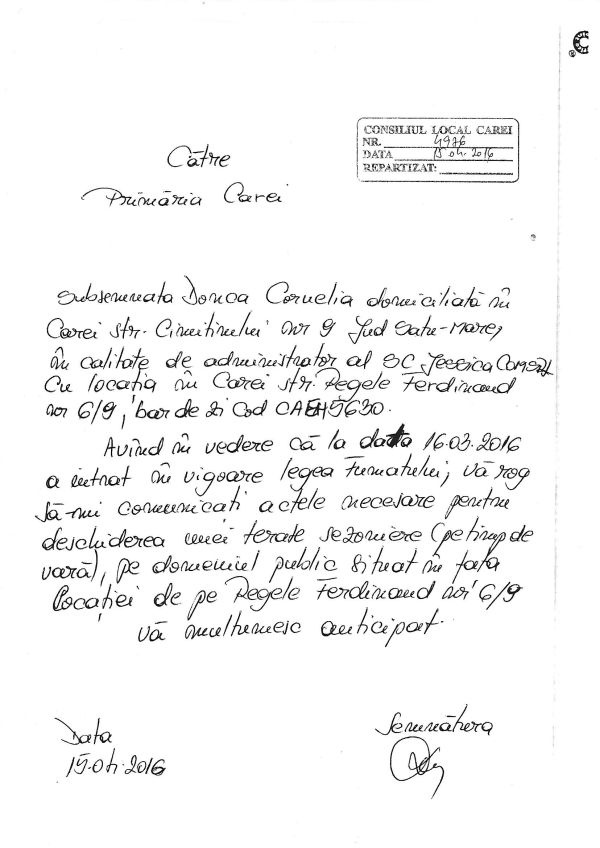 CONSILIUL LOCAL CAREI
NR. 4976
DATA 15 04. 2016
REPARTIZAT:
Către
Primăria Carei
Subsemnata Donca Cornelia domiciliată în
Carei str. Cimitirului nr 9 Jud Satu-Mare,
în calitate de administrator al SC Jessica Com SRL
Cu locația în Carei str. Regele Ferdinand
nr 6/9, bar de zi Cod CAEN 5630.
Avînd în vedere că la data 16.03.2016
a intrat în vigoare legea Fumatului, vă rog
să-mi comunicați actele necesare pentru
deschiderea unei terase sezoniere (pe timp de
vară), pe domeniul public situat în fața
locației de pe Regele Ferdinand nr 6/9
Vă mulțumesc anticipat.
Data
15.04.2016
Semnătura